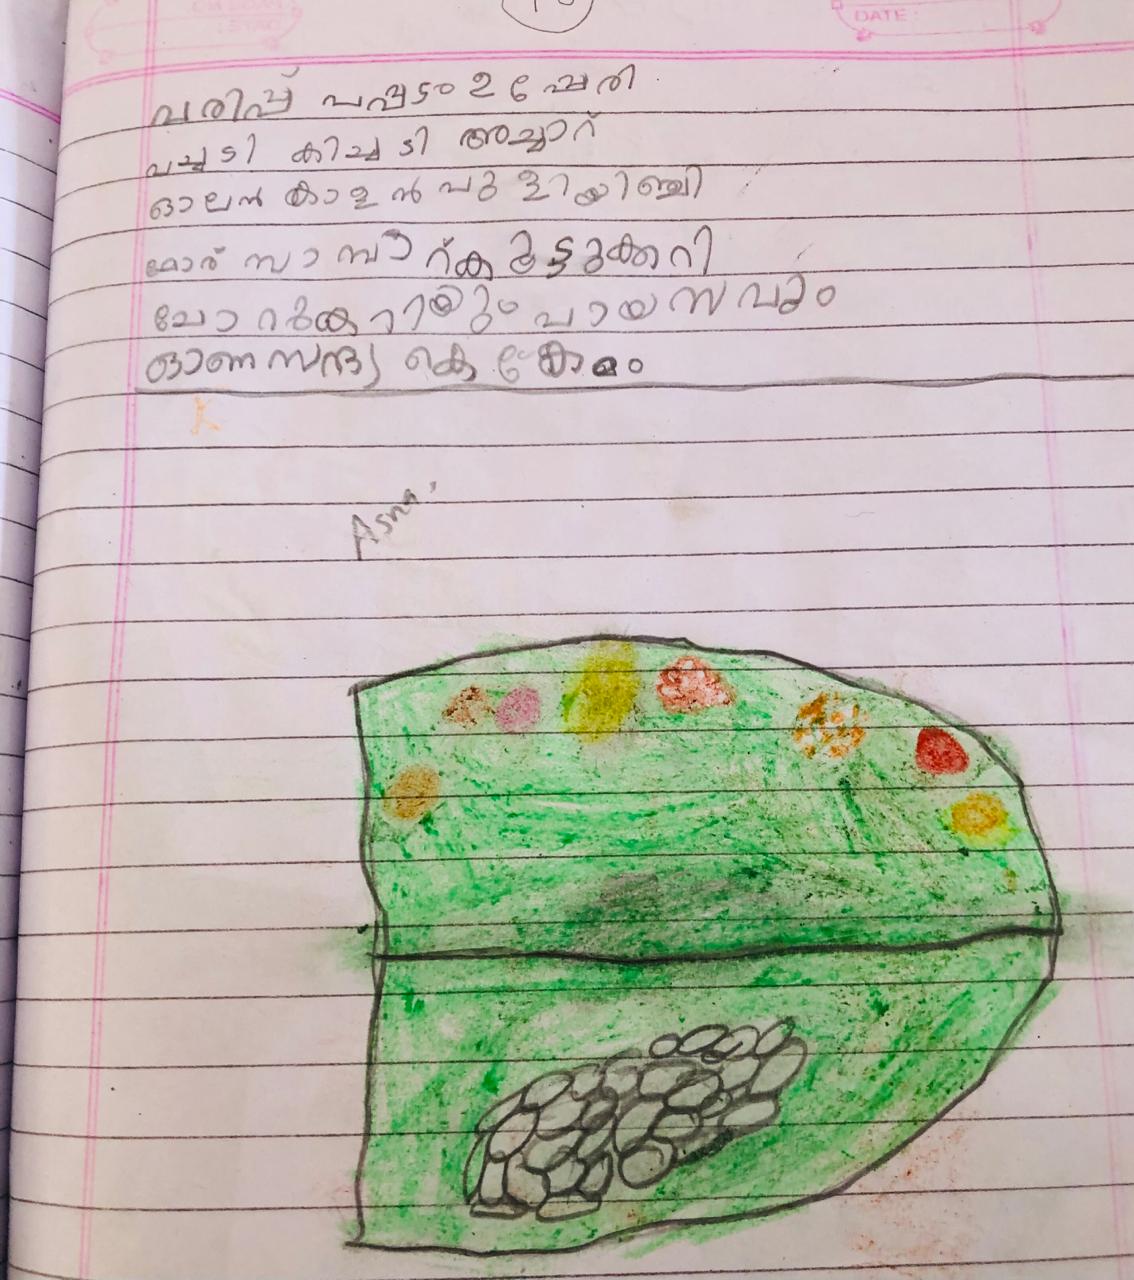 DATE :
പരിപ്പ് പപ്പടം ഉപ്പേരി
പച്ചടി കിച്ചടി അച്ചാറ്
ഓലൻ കാളൻ പുളിയിഞ്ചി
മോര് സാമ്പാറ്
കൂട്ടുക്കറി
പായസവും
ഓണസദ്യ കെങ്കേമം
Asna